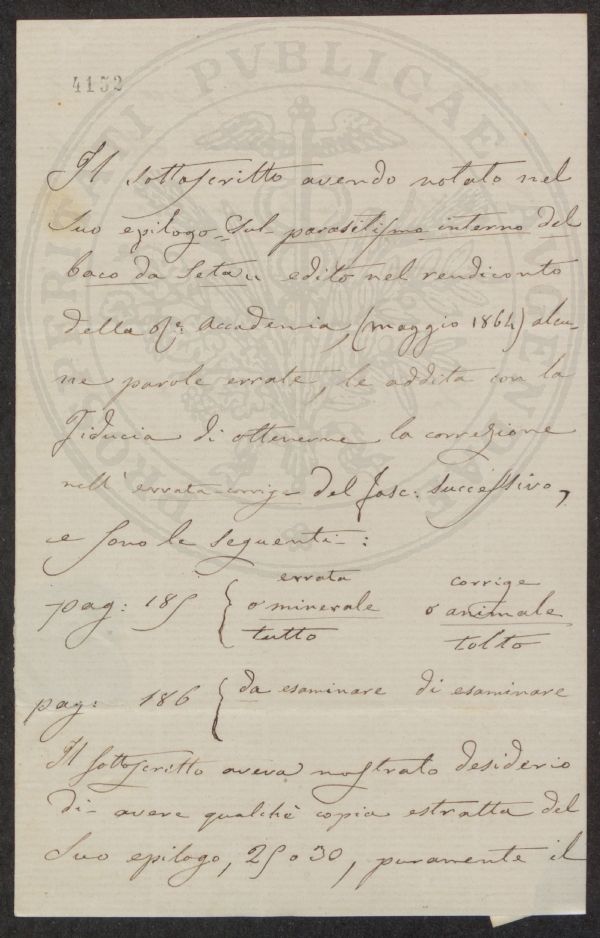 4152
Il sottoscritto avendo notato nel
suo epilogo „ Sul parasitismo interno del
baco da Seta „ edito nel rendiconto
della R.e Accademia, (maggio 1864) alcu-
ne parole errate, le addita con la
fiducia di ottenerne la correzione
nell' errata-corrige del fasc: successivo,
e sono le seguenti:
errata corrige
pag: 185 { o minerale o animale
tutto tolto
pag: 186 { da esaminare di esaminare
Il sottoscritto aveva mostrato desiderio
di avere qualche copia estratta del
Suo epilogo, 25 o 30, puramente il